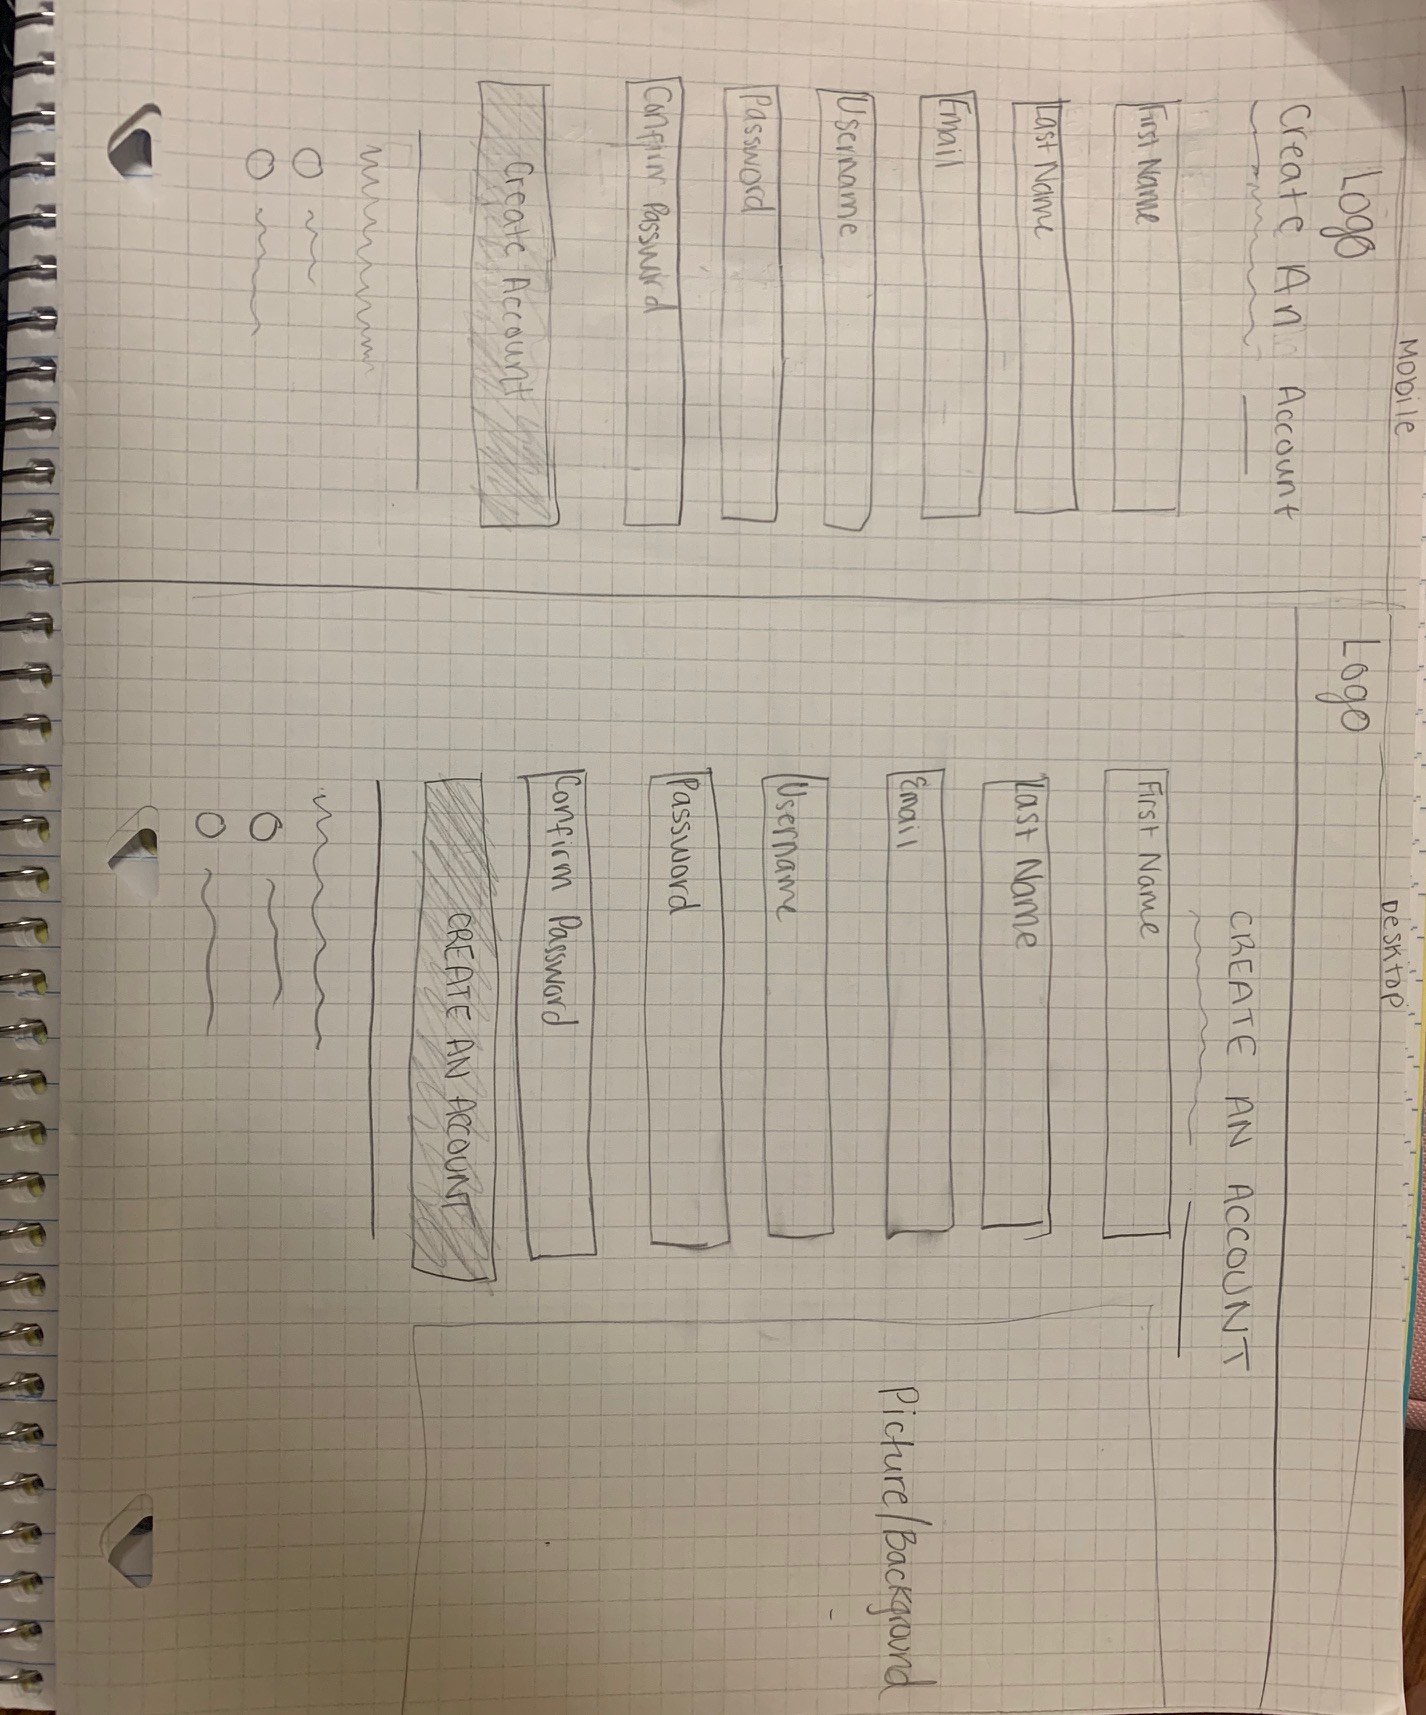 Mobile
Logo
Create An Account
First Name
Last Name
Email
Username
Password
Confirm Password
Create Account
Desktop
Logo
CREATE AN ACCOUNT
First Name
Last Name
Email
Username
Password
Confirm Password
CREATE AN ACCOUNT
Picture/Background